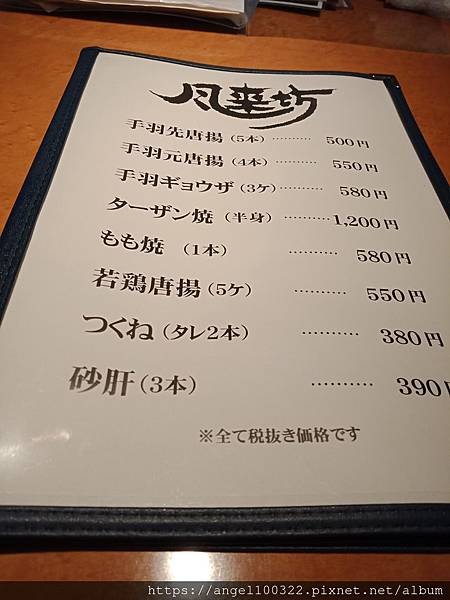 風来坊
手羽先唐揚(5本)………… 500円
手羽元唐揚(4本)………… 550円
手羽ギョウザ(3ケ)………… 580円
ターザン焼(半身)…………1,200円
もも焼 (1本) ………… 580円
若鶏唐揚(5ケ) ………… 550円
つくね(タレ2本) ………… 380円
砂肝(3本) ………… 390円
※全て税抜き価格です
https://angel100322.pixnet.net/album